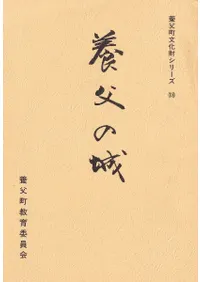 養父町文化財シリーズ
養父の城
養父町教育委員会